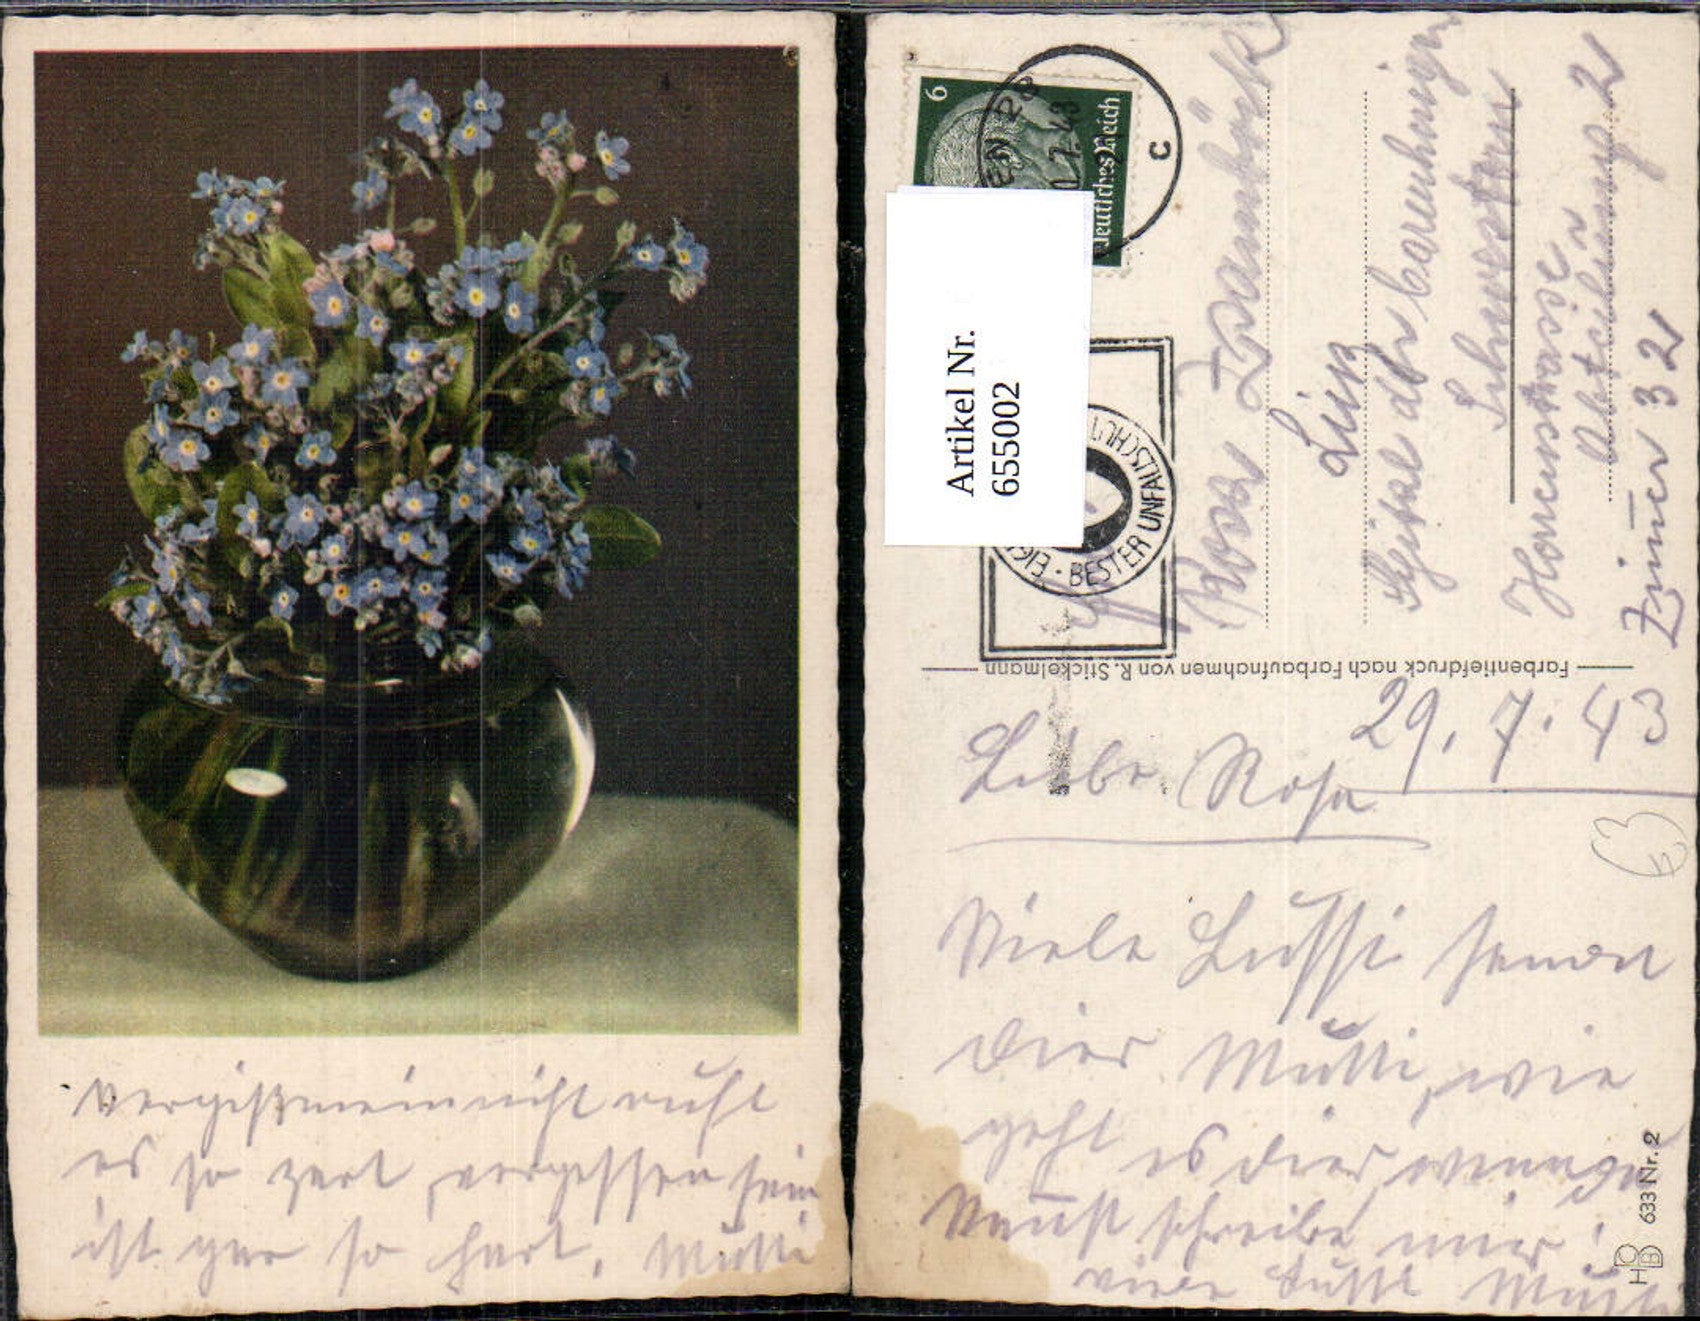 Vergißmeinnicht ruft
es so zart, vergessen sein
ist gar so hart. Mutti
6
Deutsches Reich
C
Artikel Nr.
655002
BESTER UNFALLSCHUT
Rosa
Linz
Spital der barmherzigen
Schwestern
Herrenstrasse
Abteilung 2
Zimmer 32
Farbentiefdruck nach Farbaufnahmen von R. Stickelmann
29.7.43
Liebe Rosa
Viele Bussi sendet
Dier Mutti, wie
geht es dier, wenn du
kannst schreibe mir!
viele Bussi Mutti
633 Nr. 2
HDB